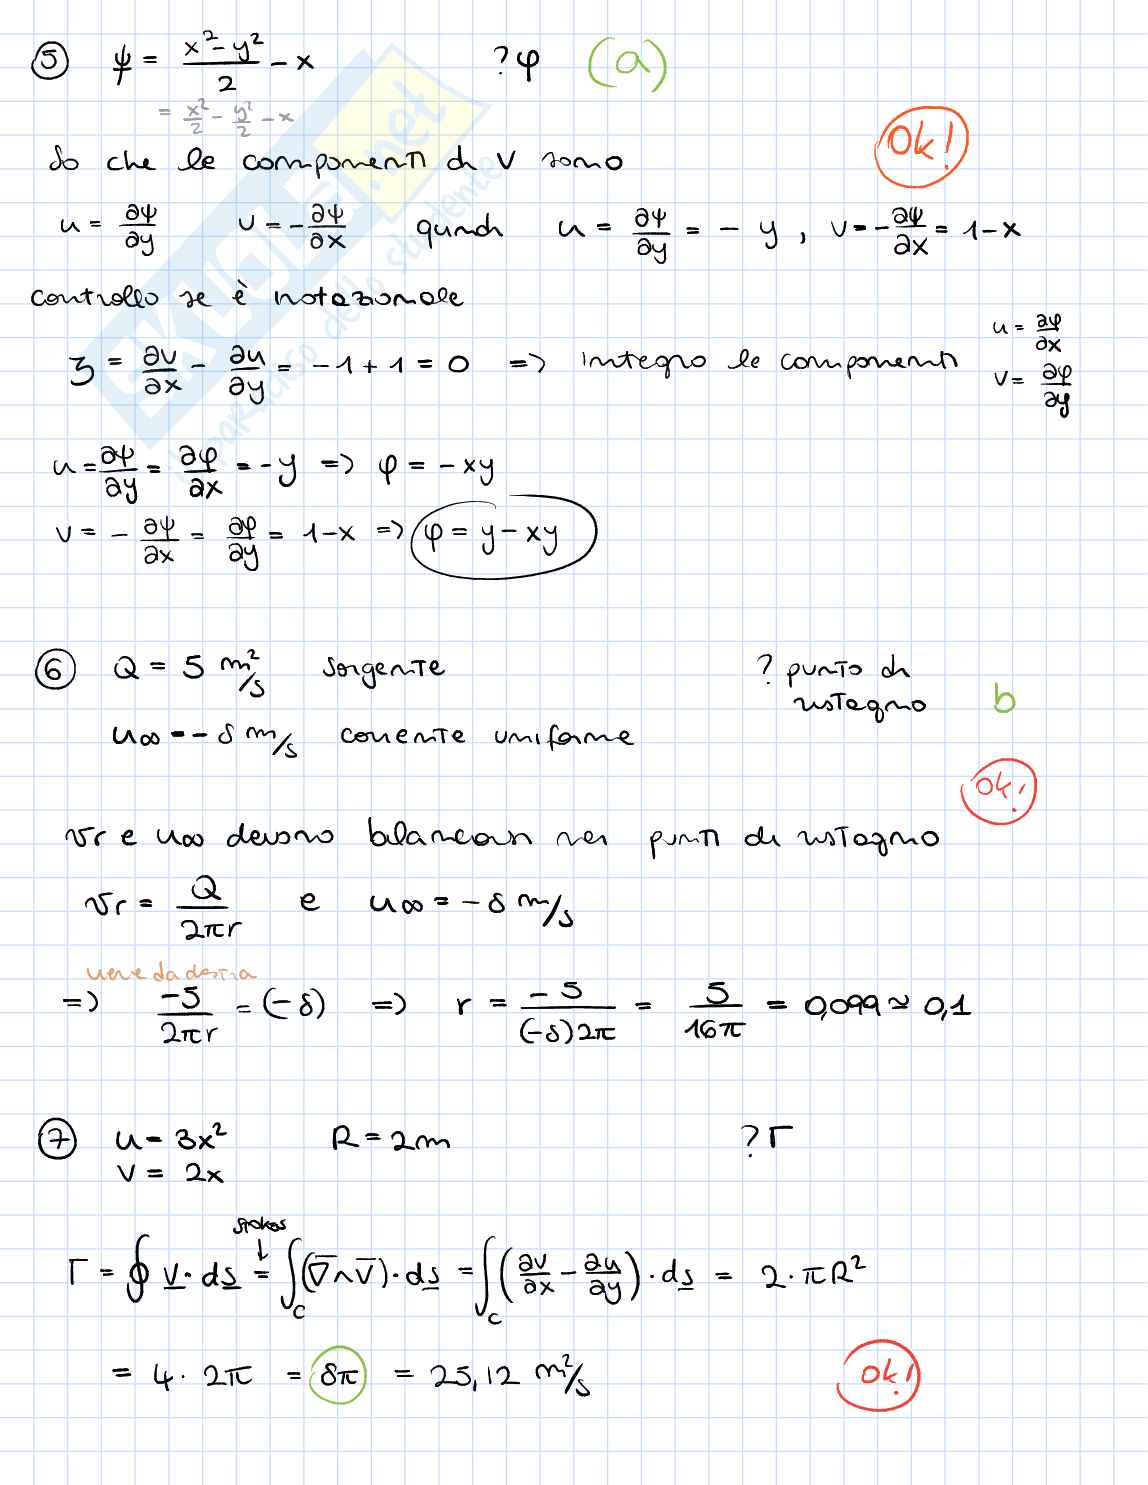 ⑤ ψ = (x² - y²)/2 - x ? φ (a)
= x²/2 - y²/2 - x
So che le componenti di V sono Ok!
u = ∂ψ/∂y v = -∂ψ/∂x quindi u = ∂ψ/∂y = - y , v = -∂ψ/∂x = 1-x
controllo se è irrotazionale
ζ = ∂v/∂x - ∂u/∂y = -1 + 1 = 0 => integro le componenti
u = ∂φ/∂x
v = ∂φ/∂y
u = ∂ψ/∂y = ∂φ/∂x = -y => φ = -xy
v = - ∂ψ/∂x = ∂φ/∂y = 1-x => φ = y - xy
⑥ Q = 5 m²/s sorgente ? punto di ristagno b
u∞ = - 8 m/s corrente uniforme
ok!
vr e u∞ devono bilanciarsi nei punti di ristagno
vr = Q/2πr e u∞ = - 8 m/s
viene da destra
=> -5/2πr = (-8) => r = -5/(-8)2π = 5/16π = 0,099 ≈ 0,1
⑦ u = 3x² R = 2m ? Γ
v = 2x
stokes
Γ = ∮ V · ds = ∫c (∇∧V) · ds = ∫c (∂v/∂x - ∂u/∂y) · ds = 2 · πR²
= 4 · 2π = 8π = 25,12 m²/s ok!
SKUOLA.net
il paradiso dello studente